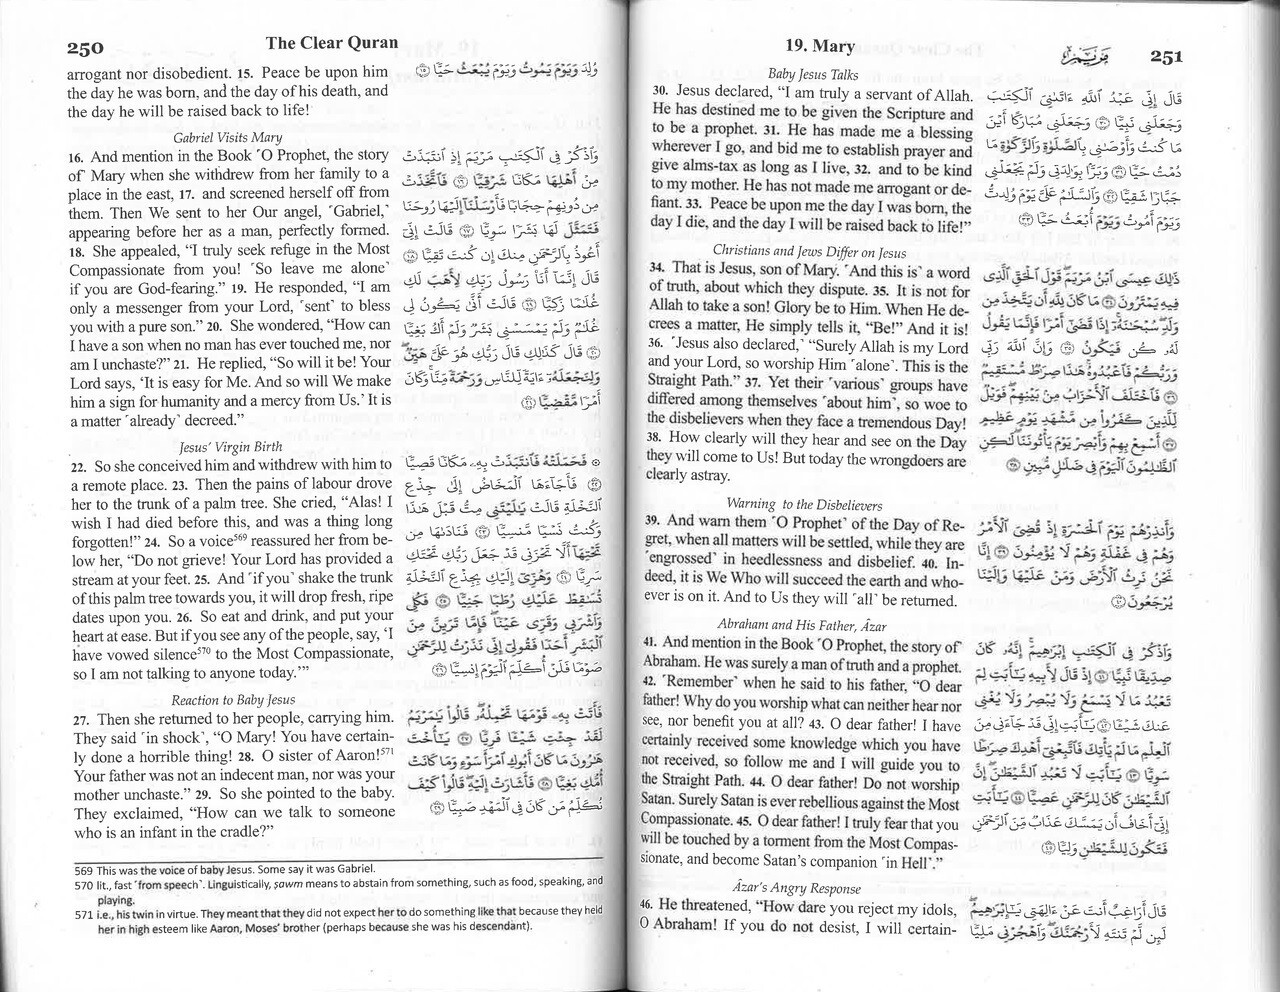 250
The Clear Quran
arrogant nor disobedient. 15. Peace be upon him
the day he was born, and the day of his death, and
the day he will be raised back to life!
وُلِدَ وَيَوْمَ يَمُوتُ وَيَوْمَ يُبْعَثُ حَيًّا ١٥
Gabriel Visits Mary
16. And mention in the Book ˹O Prophet, the story
of˺ Mary when she withdrew from her family to a
place in the east, 17. and screened herself off from
them. Then We sent to her Our angel, ˹Gabriel,˺
appearing before her as a man, perfectly formed.
18. She appealed, “I truly seek refuge in the Most
Compassionate from you! ˹So leave me alone˺
if you are God-fearing.” 19. He responded, “I am
only a messenger from your Lord, ˹sent˺ to bless
you with a pure son.” 20. She wondered, “How can
I have a son when no man has ever touched me, nor
am I unchaste?” 21. He replied, “So will it be! Your
Lord says, ‘It is easy for Me. And so will We make
him a sign for humanity and a mercy from Us.’ It is
a matter ˹already˺ decreed.”
وَٱذْكُرْ فِى ٱلْكِتَـٰبِ مَرْيَمَ إِذِ ٱنتَبَذَتْ
مِنْ أَهْلِهَا مَكَانًا شَرْقِيًّا ١٦ فَٱتَّخَذَتْ
مِن دُونِهِمْ حِجَابًا فَأَرْسَلْنَآ إِلَيْهَا رُوحَنَا
فَتَمَثَّلَ لَهَا بَشَرًا سَوِيًّا ١٧ قَالَتْ إِنِّىٓ
أَعُوذُ بِٱلرَّحْمَـٰنِ مِنكَ إِن كُنتَ تَقِيًّا ١٨
قَالَ إِنَّمَآ أَنَا۠ رَسُولُ رَبِّكِ لِأَهَبَ لَكِ
غُلَـٰمًا زَكِيًّا ١٩ قَالَتْ أَنَّىٰ يَكُونُ لِى
غُلَـٰمٌ وَلَمْ يَمْسَسْنِى بَشَرٌ وَلَمْ أَكُ بَغِيًّا
٢٠ قَالَ كَذَٰلِكِ قَالَ رَبُّكِ هُوَ عَلَىَّ هَيِّنٌ ۖ
وَلِنَجْعَلَهُۥٓ ءَايَةً لِّلنَّاسِ وَرَحْمَةً مِّنَّا ۚ وَكَانَ
أَمْرًا مَّقْضِيًّا ٢١
Jesus’ Virgin Birth
22. So she conceived him and withdrew with him to
a remote place. 23. Then the pains of labour drove
her to the trunk of a palm tree. She cried, “Alas! I
wish I had died before this, and was a thing long
forgotten!” 24. So a voice569 reassured her from be-
low her, “Do not grieve! Your Lord has provided a
stream at your feet. 25. And ˹if you˺ shake the trunk
of this palm tree towards you, it will drop fresh, ripe
dates upon you. 26. So eat and drink, and put your
heart at ease. But if you see any of the people, say, ‘I
have vowed silence570 to the Most Compassionate,
so I am not talking to anyone today.’”
۞ فَحَمَلَتْهُ فَٱنتَبَذَتْ بِهِۦ مَكَانًا قَصِيًّا
٢٢ فَأَجَآءَهَا ٱلْمَخَاضُ إِلَىٰ جِذْعِ
ٱلنَّخْلَةِ قَالَتْ يَـٰلَيْتَنِى مِتُّ قَبْلَ هَـٰذَا
وَكُنتُ نَسْيًا مَّنسِيًّا ٢٣ فَنَادَىٰهَا مِن
تَحْتِهَآ أَلَّا تَحْزَنِى قَدْ جَعَلَ رَبُّكِ تَحْتَكِ
سَرِيًّا ٢٤ وَهُزِّىٓ إِلَيْكِ بِجِذْعِ ٱلنَّخْلَةِ
تُسَـٰقِطْ عَلَيْكِ رُطَبًا جَنِيًّا ٢٥ فَكُلِى
وَٱشْرَبِى وَقَرِّى عَيْنًا ۖ فَإِمَّا تَرَيِنَّ مِنَ
ٱلْبَشَرِ أَحَدًا فَقُولِىٓ إِنِّى نَذَرْتُ لِلرَّحْمَـٰنِ
صَوْمًا فَلَنْ أُكَلِّمَ ٱلْيَوْمَ إِنسِيًّا ٢٦
Reaction to Baby Jesus
27. Then she returned to her people, carrying him.
They said ˹in shock˺, “O Mary! You have certain-
ly done a horrible thing! 28. O sister of Aaron!571
Your father was not an indecent man, nor was your
mother unchaste.” 29. So she pointed to the baby.
They exclaimed, “How can we talk to someone
who is an infant in the cradle?”
فَأَتَتْ بِهِۦ قَوْمَهَا تَحْمِلُهُۥ ۖ قَالُوا۟ يَـٰمَرْيَمُ
لَقَدْ جِئْتِ شَيْـًٔا فَرِيًّا ٢٧ يَـٰٓأُخْتَ
هَـٰرُونَ مَا كَانَ أَبُوكِ ٱمْرَأَ سَوْءٍ وَمَا كَانَتْ
أُمُّكِ بَغِيًّا ٢٨ فَأَشَارَتْ إِلَيْهِ ۖ قَالُوا۟ كَيْفَ
نُكَلِّمُ مَن كَانَ فِى ٱلْمَهْدِ صَبِيًّا ٢٩
569 This was the voice of baby Jesus. Some say it was Gabriel.
570 lit., fast ˹from speech˺. Linguistically, ṣawm means to abstain from something, such as food, speaking, and
playing.
571 i.e., his twin in virtue. They meant that they did not expect her to do something like that because they held
her in high esteem like Aaron, Moses’ brother (perhaps because she was his descendant).
19. Mary
مَرْيَم
251
Baby Jesus Talks
30. Jesus declared, “I am truly a servant of Allah.
He has destined me to be given the Scripture and
to be a prophet. 31. He has made me a blessing
wherever I go, and bid me to establish prayer and
give alms-tax as long as I live, 32. and to be kind
to my mother. He has not made me arrogant or de-
fiant. 33. Peace be upon me the day I was born, the
day I die, and the day I will be raised back to life!”
قَالَ إِنِّى عَبْدُ ٱللَّهِ ءَاتَىٰنِىَ ٱلْكِتَـٰبَ
وَجَعَلَنِى نَبِيًّا ٣٠ وَجَعَلَنِى مُبَارَكًا أَيْنَ
مَا كُنتُ وَأَوْصَـٰنِى بِٱلصَّلَوٰةِ وَٱلزَّكَوٰةِ مَا
دُمْتُ حَيًّا ٣١ وَبَرًّۢا بِوَٰلِدَتِى وَلَمْ يَجْعَلْنِى
جَبَّارًا شَقِيًّا ٣٢ وَٱلسَّلَـٰمُ عَلَىَّ يَوْمَ وُلِدتُّ
وَيَوْمَ أَمُوتُ وَيَوْمَ أُبْعَثُ حَيًّا ٣٣
Christians and Jews Differ on Jesus
34. That is Jesus, son of Mary. ˹And this is˺ a word
of truth, about which they dispute. 35. It is not for
Allah to take a son! Glory be to Him. When He de-
crees a matter, He simply tells it, “Be!” And it is!
36. ˹Jesus also declared,˺ “Surely Allah is my Lord
and your Lord, so worship Him ˹alone˺. This is the
Straight Path.” 37. Yet their ˹various˺ groups have
differed among themselves ˹about him˺, so woe to
the disbelievers when they face a tremendous Day!
38. How clearly will they hear and see on the Day
they will come to Us! But today the wrongdoers are
clearly astray.
ذَٰلِكَ عِيسَى ٱبْنُ مَرْيَمَ ۚ قَوْلَ ٱلْحَقِّ ٱلَّذِى
فِيهِ يَمْتَرُونَ ٣٤ مَا كَانَ لِلَّهِ أَن يَتَّخِذَ مِن
وَلَدٍ ۖ سُبْحَـٰنَهُۥٓ ۚ إِذَا قَضَىٰٓ أَمْرًا فَإِنَّمَا يَقُولُ
لَهُۥ كُن فَيَكُونُ ٣٥ وَإِنَّ ٱللَّهَ رَبِّى
وَرَبُّكُمْ فَٱعْبُدُوهُ ۚ هَـٰذَا صِرَٰطٌ مُّسْتَقِيمٌ
٣٦ فَٱخْتَلَفَ ٱلْأَحْزَابُ مِنۢ بَيْنِهِمْ ۖ فَوَيْلٌ
لِّلَّذِينَ كَفَرُوا۟ مِن مَّشْهَدِ يَوْمٍ عَظِيمٍ
٣٧ أَسْمِعْ بِهِمْ وَأَبْصِرْ يَوْمَ يَأْتُونَنَا ۖ لَـٰكِنِ
ٱلظَّـٰلِمُونَ ٱلْيَوْمَ فِى ضَلَـٰلٍ مُّبِينٍ ٣٨
Warning to the Disbelievers
39. And warn them ˹O Prophet˺ of the Day of Re-
gret, when all matters will be settled, while they are
˹engrossed˺ in heedlessness and disbelief. 40. In-
deed, it is We Who will succeed the earth and who-
ever is on it. And to Us they will ˹all˺ be returned.
وَأَنذِرْهُمْ يَوْمَ ٱلْحَسْرَةِ إِذْ قُضِىَ ٱلْأَمْرُ
وَهُمْ فِى غَفْلَةٍ وَهُمْ لَا يُؤْمِنُونَ ٣٩ إِنَّا
نَحْنُ نَرِثُ ٱلْأَرْضَ وَمَنْ عَلَيْهَا وَإِلَيْنَا
يُرْجَعُونَ ٤٠
Abraham and His Father, Ȃzar
41. And mention in the Book ˹O Prophet, the story of˺
Abraham. He was surely a man of truth and a prophet.
42. ˹Remember˺ when he said to his father, “O dear
father! Why do you worship what can neither hear nor
see, nor benefit you at all? 43. O dear father! I have
certainly received some knowledge which you have
not received, so follow me and I will guide you to
the Straight Path. 44. O dear father! Do not worship
Satan. Surely Satan is ever rebellious against the Most
Compassionate. 45. O dear father! I truly fear that you
will be touched by a torment from the Most Compas-
sionate, and become Satan’s companion ˹in Hell˺.”
وَٱذْكُرْ فِى ٱلْكِتَـٰبِ إِبْرَٰهِيمَ ۚ إِنَّهُۥ كَانَ
صِدِّيقًا نَّبِيًّا ٤١ إِذْ قَالَ لِأَبِيهِ يَـٰٓأَبَتِ لِمَ
تَعْبُدُ مَا لَا يَسْمَعُ وَلَا يُبْصِرُ وَلَا يُغْنِى
عَنكَ شَيْـًٔا ٤٢ يَـٰٓأَبَتِ إِنِّى قَدْ جَآءَنِى مِنَ
ٱلْعِلْمِ مَا لَمْ يَأْتِكَ فَٱتَّبِعْنِىٓ أَهْدِكَ صِرَٰطًا
سَوِيًّا ٤٣ يَـٰٓأَبَتِ لَا تَعْبُدِ ٱلشَّيْطَـٰنَ ۖ إِنَّ
ٱلشَّيْطَـٰنَ كَانَ لِلرَّحْمَـٰنِ عَصِيًّا ٤٤ يَـٰٓأَبَتِ
إِنِّىٓ أَخَافُ أَن يَمَسَّكَ عَذَابٌ مِّنَ ٱلرَّحْمَـٰنِ
فَتَكُونَ لِلشَّيْطَـٰنِ وَلِيًّا ٤٥
Ȃzar’s Angry Response
46. He threatened, “How dare you reject my idols,
O Abraham! If you do not desist, I will certain-
قَالَ أَرَاغِبٌ أَنتَ عَنْ ءَالِهَتِى يَـٰٓإِبْرَٰهِيمُ ۖ
لَئِن لَّمْ تَنتَهِ لَأَرْجُمَنَّكَ ۖ وَٱهْجُرْنِى مَلِيًّا